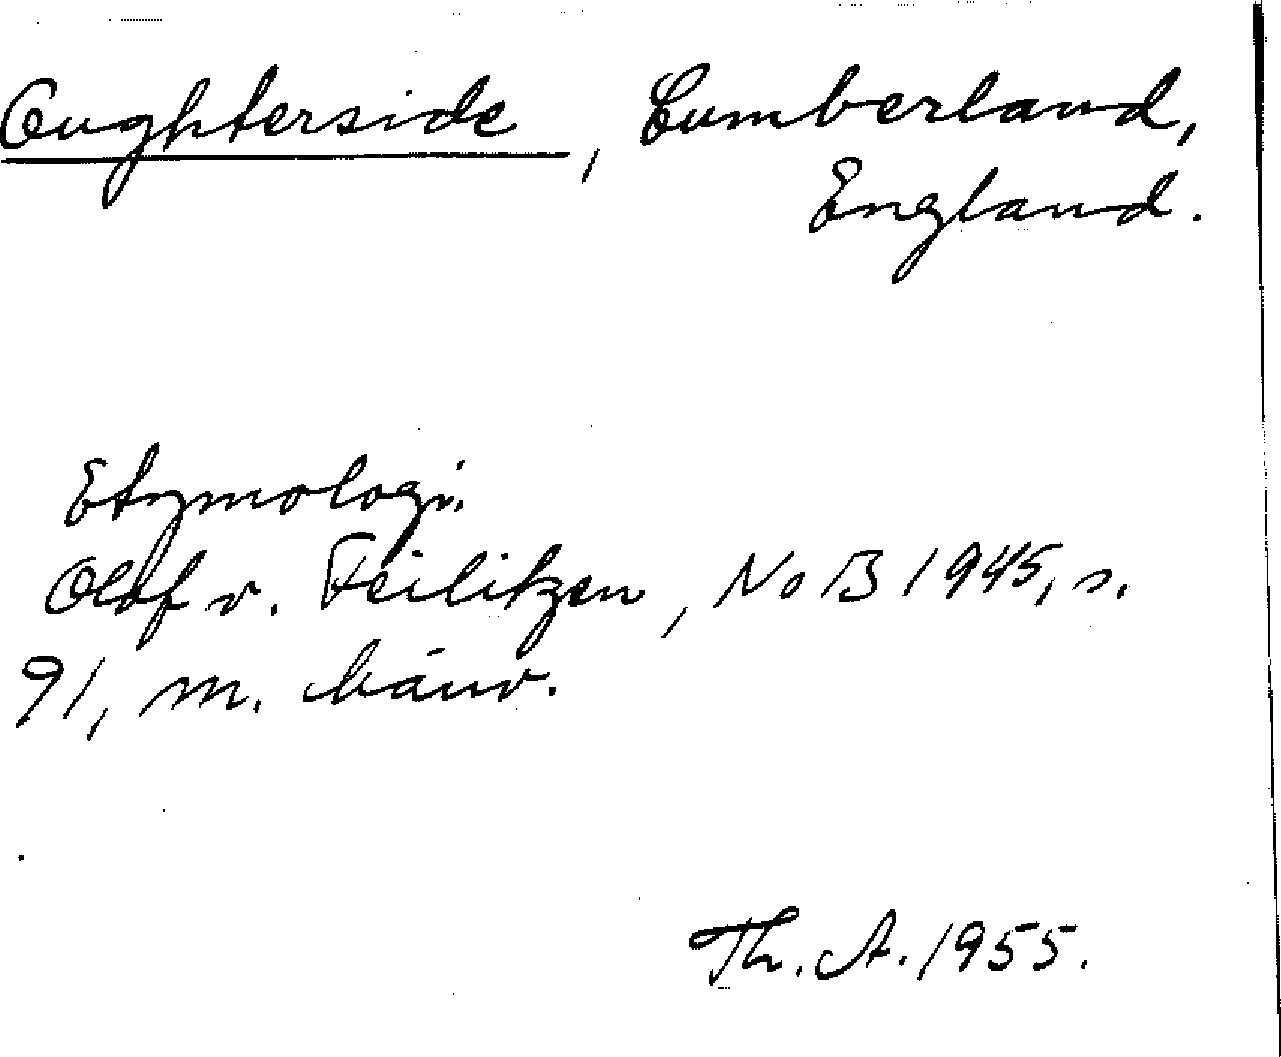 Oughterside, Cumberland,
England.
Etymologi.
Olof v. Feilitzen, NoB 1945, s.
91, m. hänv.
Th. A. 1955.